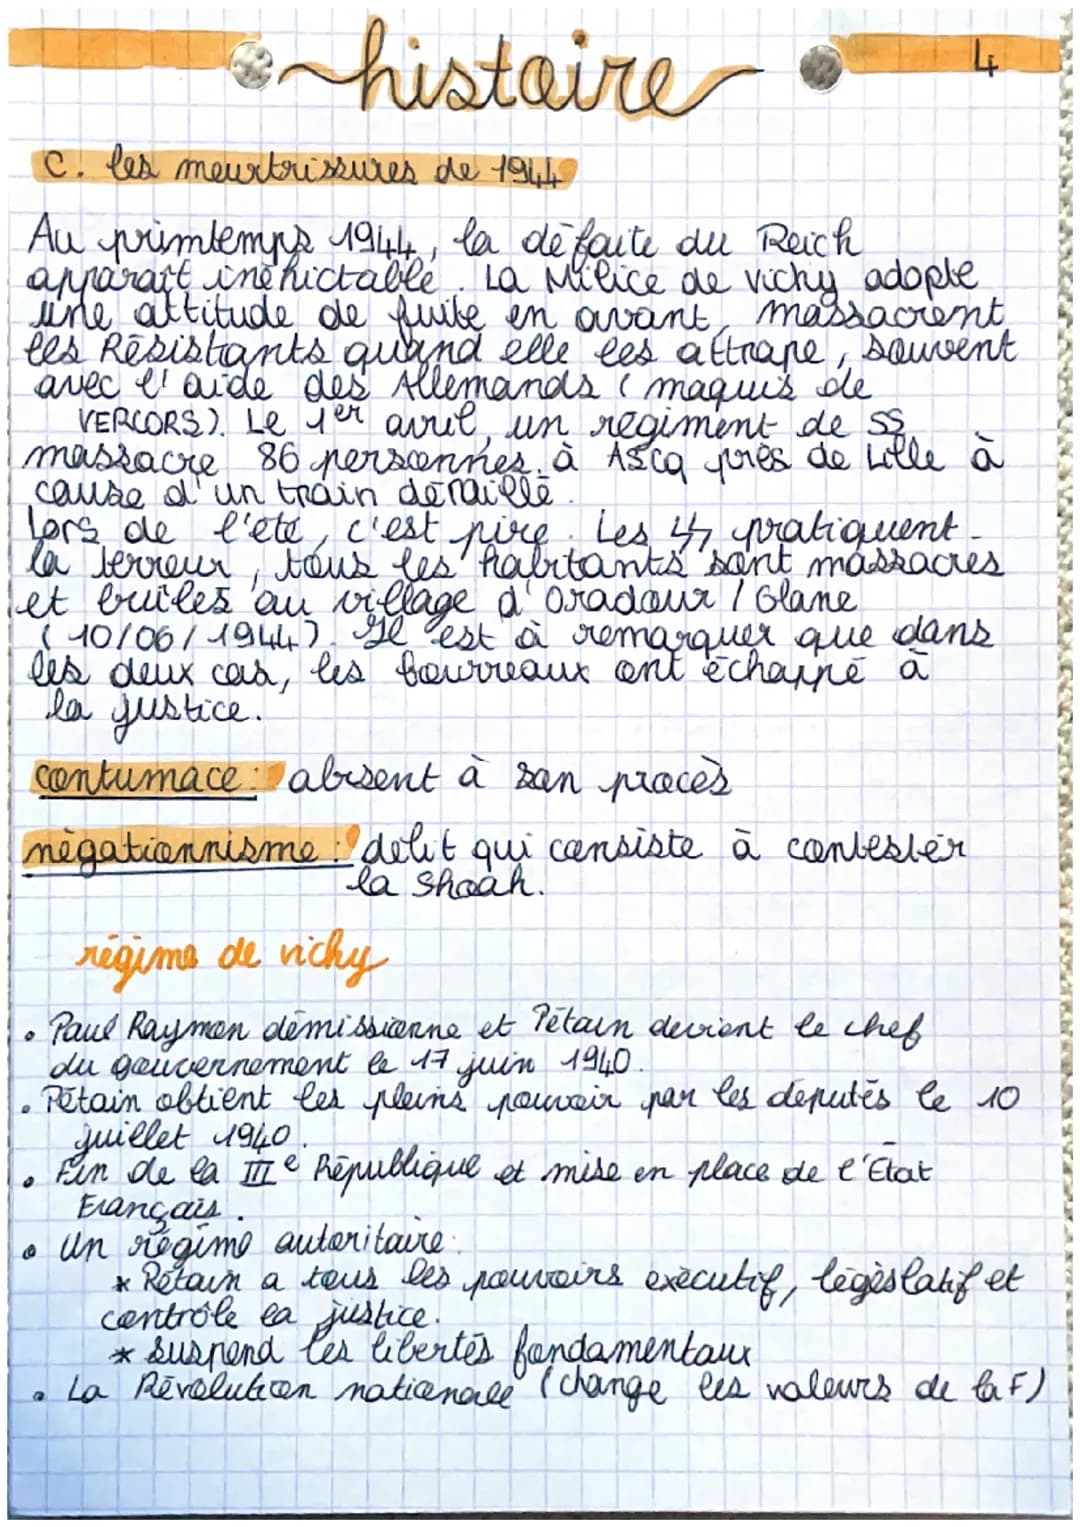 histoire
4
C. les meurtrissures de 1944
Au primtemps 1944, la défaite du Reich
apparaît inéluctable. La Milice de vichy adopte
une attitude de fuite en avant, massacrent
les Résistants quand elle les attrape, souvent
avec l'aide des Allemands (maquis de
VERCORS). Le 1er avril, un régiment de SS
massacre 86 personnes à ASCQ près de Lille à
cause d'un train déraillé.
Lors de l'été, c'est pire. Les SS pratiquent
la terreur, tous les habitants sont massacrés
et brûlés au village d'Oradour / Glane
(10/06/1944). Il est à remarquer que dans
les deux cas, les bourreaux ont échappé à
la justice.
contumace : absent à son procès
négationnisme : délit qui consiste à contester
la Shoah.
régime de vichy
• Paul Raymon démissionne et Pétain devient le chef
du gouvernement le 17 juin 1940.
• Pétain obtient les pleins pouvoir par les députés le 10
juillet 1940.
• Fin de la IIIe République et mise en place de l'État
Français.
• Un régime autoritaire :
* Pétain a tous les pouvoirs exécutif, législatif et
contrôle la justice.
* suspend les libertés fondamentaux
• La Révolution nationale (change les valeurs de la F)